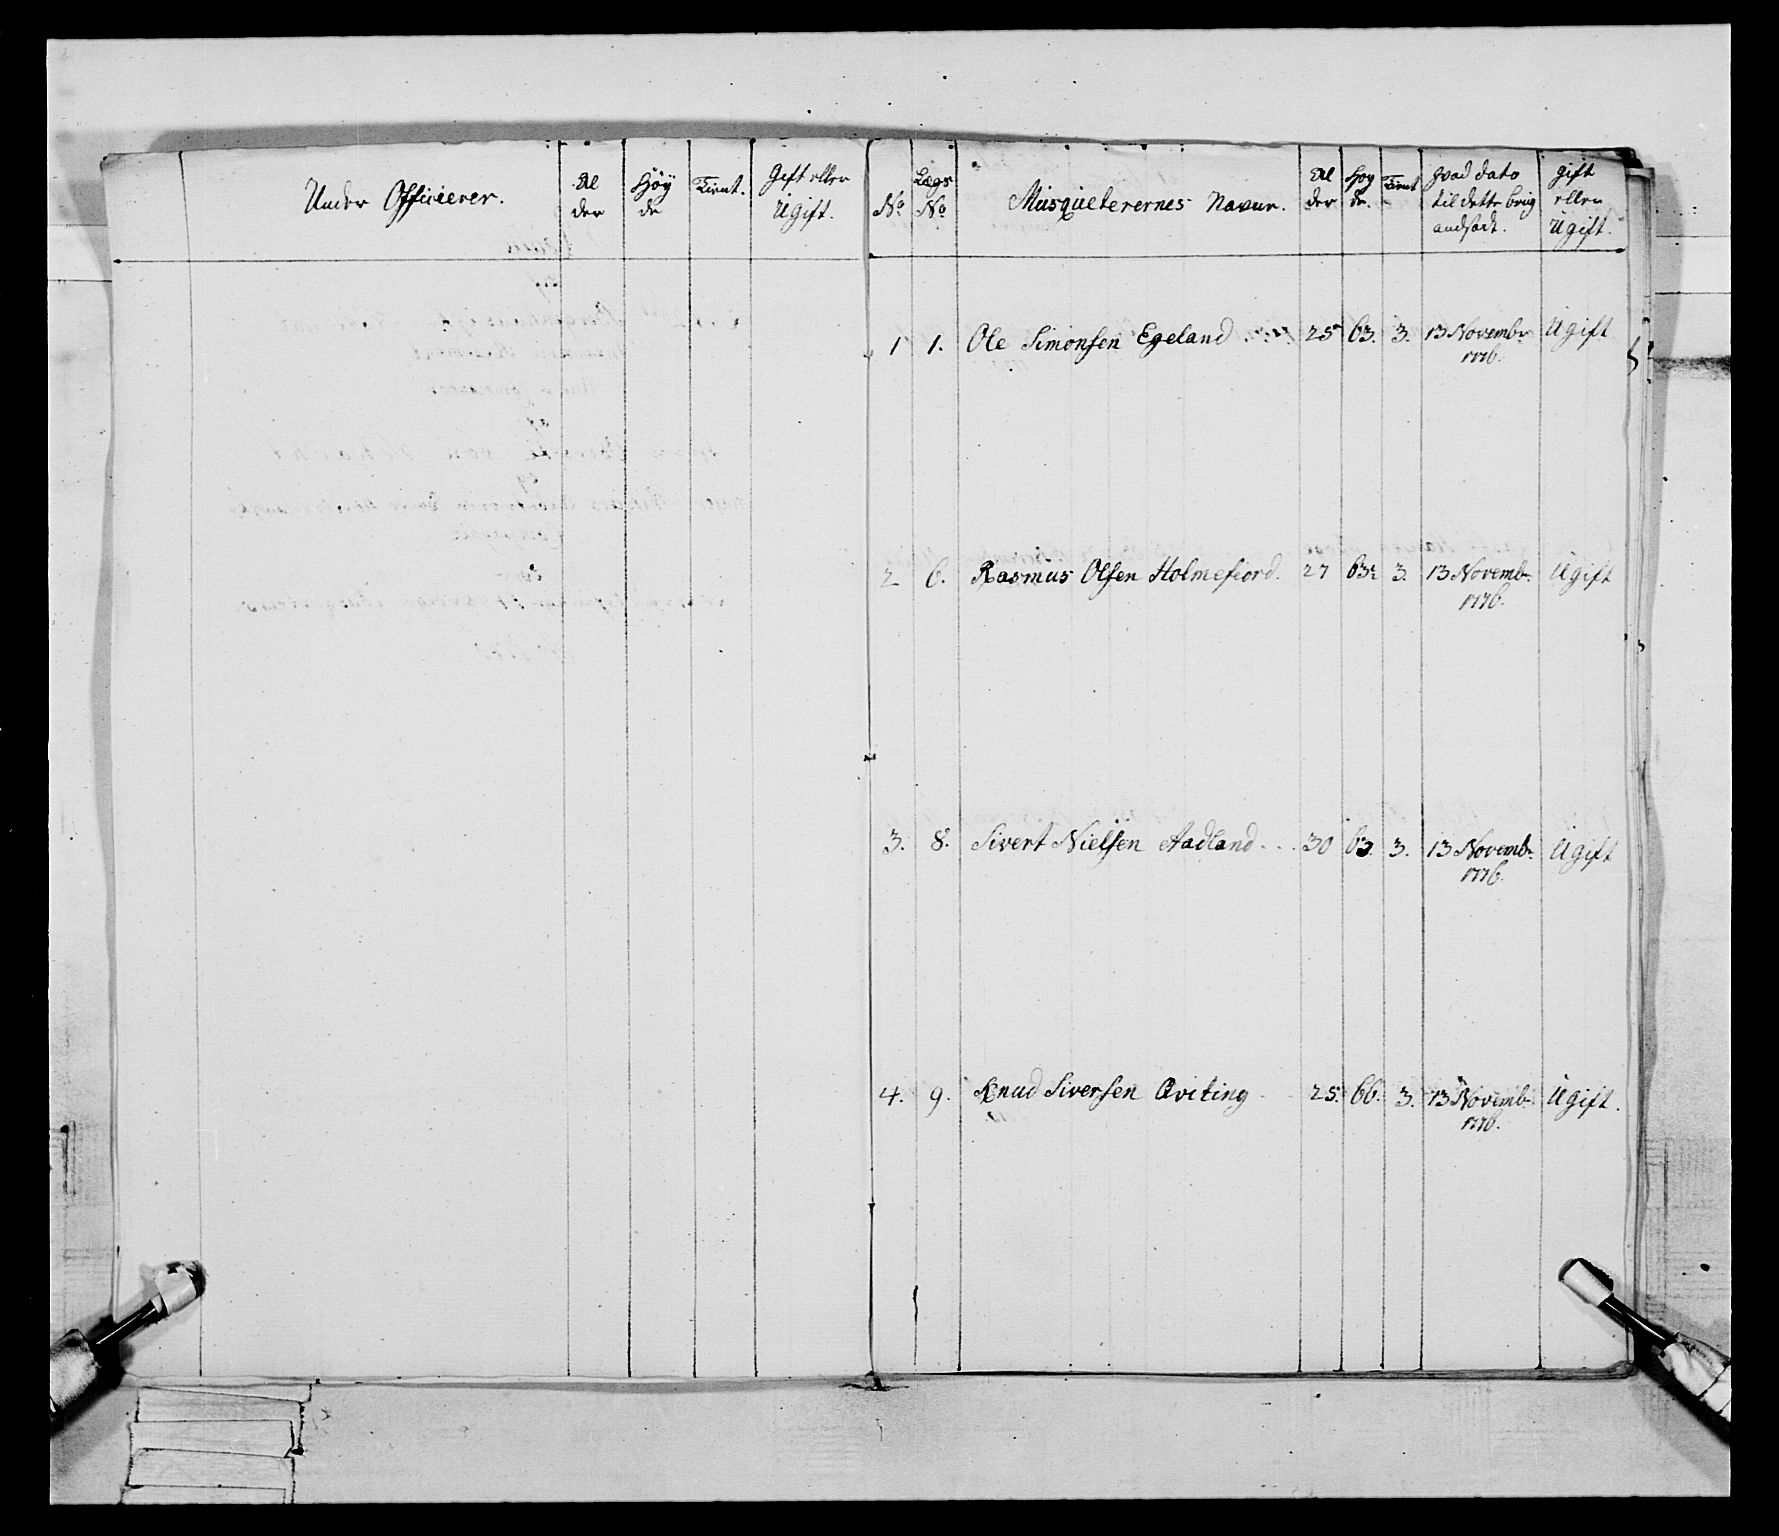 Under Officierer.
Al
der
Höÿ
de
Tient.
Gift eller
Ugift.
No
Lægs
No
Musqueterernes Navne.
Al
der
Høy
de.
Tient
hvad dato
til dette brug
andsadt.
gift
eller
Ugift.
1 1. Ole Simonsen Egeland 25 63. 3. 13 Novembr Ugift
1776.
2 6. Rasmus Olsen Holmefiord. 27 63½ 3. 13 Novemb. Ugift
1776.
3. 8. Sivert Nielsen Aadland 30 63. 3. 13 Novemb. Ugift
1776.
4. 9. Knud Siversen Qviting 25. 66. 3. 13 Novemb. Ugift.
1776.